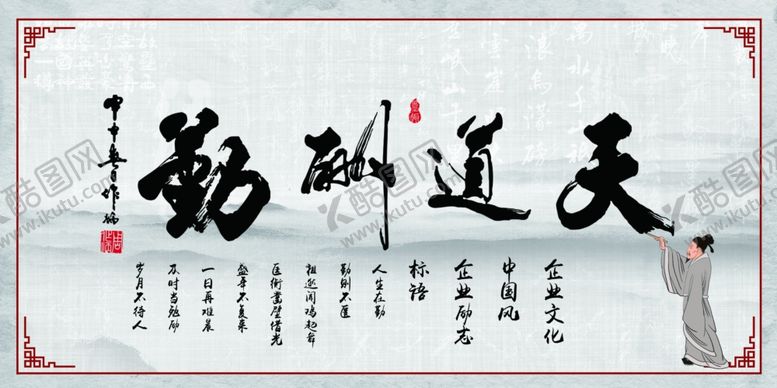 天道酬勤
企业文化
中国风
企业励志
标语
人生在勤
勤则不匮
祖逖闻鸡起舞
匡衡凿壁借光
盛年不复来
一日再难晨
及时当勉励
岁月不待人
酷图网
www.ikutu.com
酷图网
www.ikutu.com
酷图网
www.ikutu.com